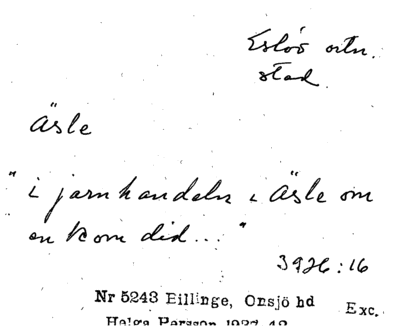 Eslöv ortn.
stad.
Äsle
"i jarnhandeln i Äsle om
en kom did..."
3926:16
Nr 5243 Billinge, Onsjö hd
Exc.
Helga Persson 1937-42